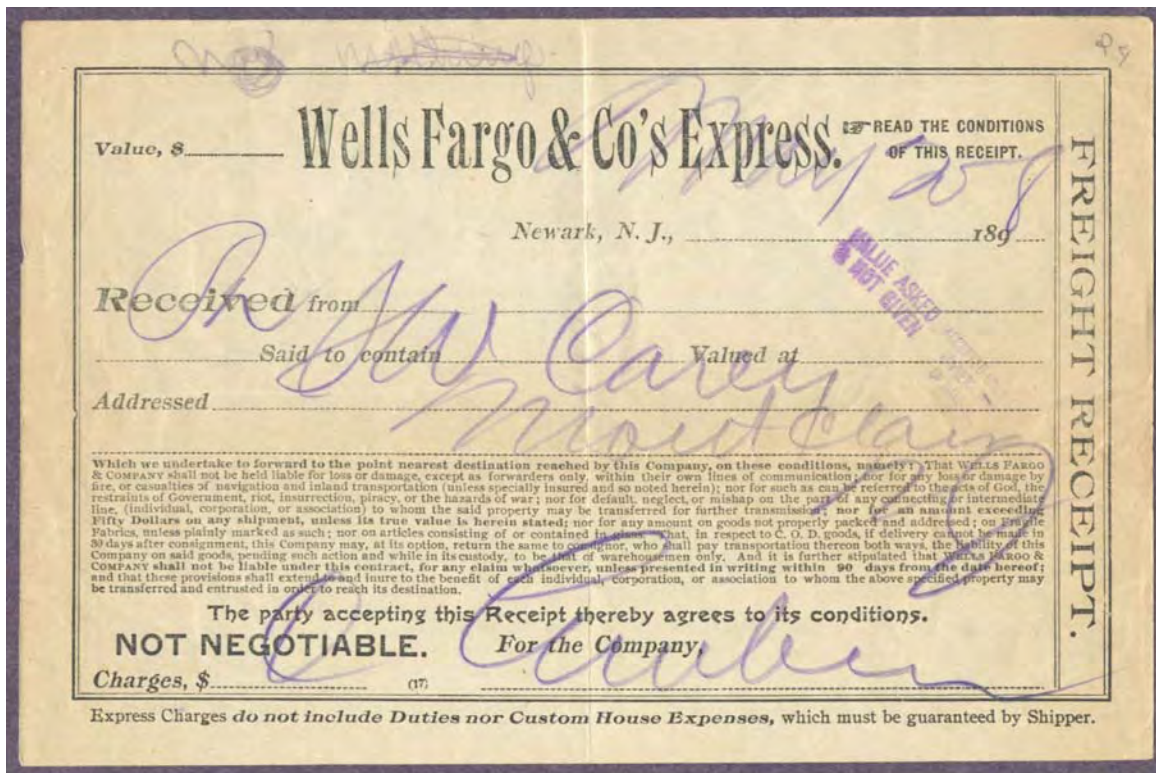 Value, $
Wells Fargo & Co's Express.
READ THE CONDITIONS
OF THIS RECEIPT.
May 28
Newark, N. J., 189
VALUE ASKED
& NOT GIVEN
Received from
Said to contain Valued at
H W Carey
Addressed
Montclair
NJ
Which we undertake to forward to the point nearest destination reached by this Company, on these conditions, namely: That WELLS FARGO
& COMPANY shall not be held liable for loss or damage, except as forwarders only, within their own lines of communication; nor for any loss or damage by
fire, or casualties of navigation and inland transportation (unless specially insured and so noted herein); nor for such as can be referred to the acts of God, the
restraints of Government, riot, insurrection, piracy, or the hazards of war; nor for default, neglect, or mishap on the part of any connecting or intermediate
line, (individual, corporation, or association) to whom the said property may be transferred for further transmission; nor for an amount exceeding
Fifty Dollars on any shipment, unless its true value is herein stated; nor for any amount on goods not properly packed and addressed; on Fragile
Fabrics, unless plainly marked as such; nor on articles consisting of or contained in glass. That, in respect to C. O. D. goods, if delivery cannot be made in
30 days after consignment, this Company may, at its option, return the same to consignor, who shall pay transportation thereon both ways, the liability of this
Company on said goods, pending such action and while in its custody, to be that of warehousemen only. And it is further stipulated that WELLS FARGO &
COMPANY shall not be liable under this contract, for any claim whatsoever, unless presented in writing within 90 days from the date hereof;
and that these provisions shall extend to and inure to the benefit of each individual, corporation, or association to whom the above specified property may
be transferred and entrusted in order to reach its destination.
The party accepting this Receipt thereby agrees to its conditions.
NOT NEGOTIABLE. For the Company,
Charges, $ (17)
Express Charges do not include Duties nor Custom House Expenses, which must be guaranteed by Shipper.
FREIGHT RECEIPT.